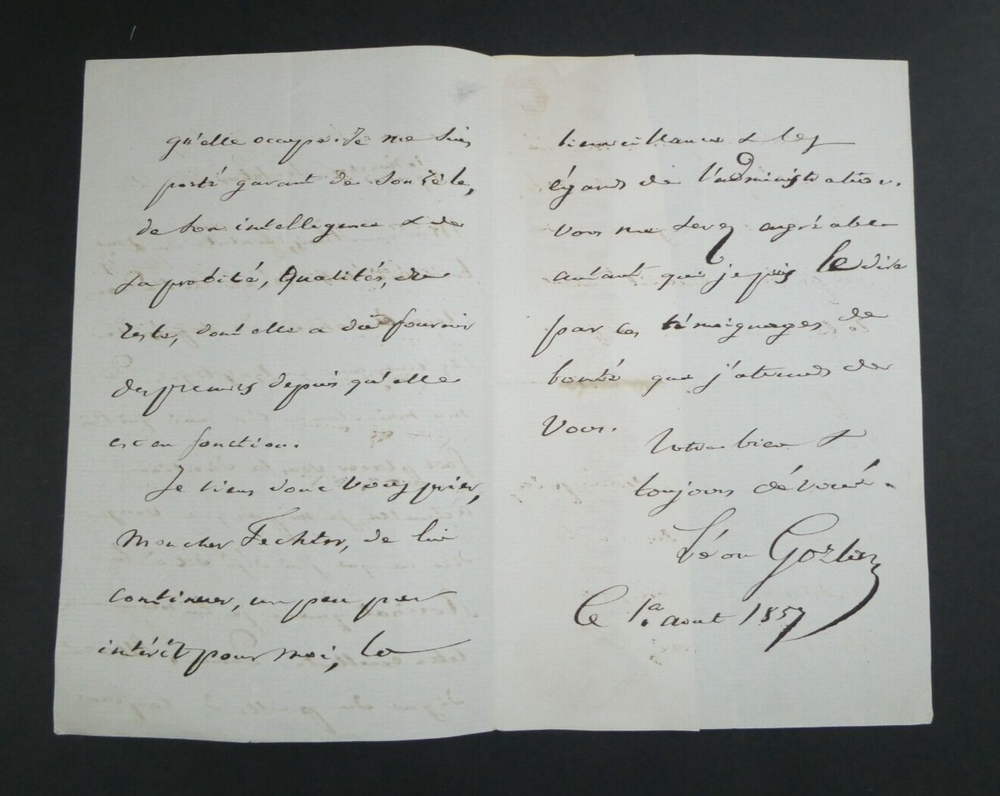 qu'elle occupe. Je me suis
porté garant de son zèle,
de son intelligence & de
sa probité, qualités, du
reste, dont elle a dû fournir
des preuves depuis qu'elle
est en fonction.
Je viens donc vous prier,
Mon cher Fechter, de lui
continuer, un peu par
intérêt pour moi, la
bienveillance & les
égards de l'administration.
Vous me serez agréable
autant que je puis le dire
par les témoignages de
bonté que j'attends de
vous.
Votre bien &
toujours dévoué.
Léon Gozlan
Le 1a aout 1857